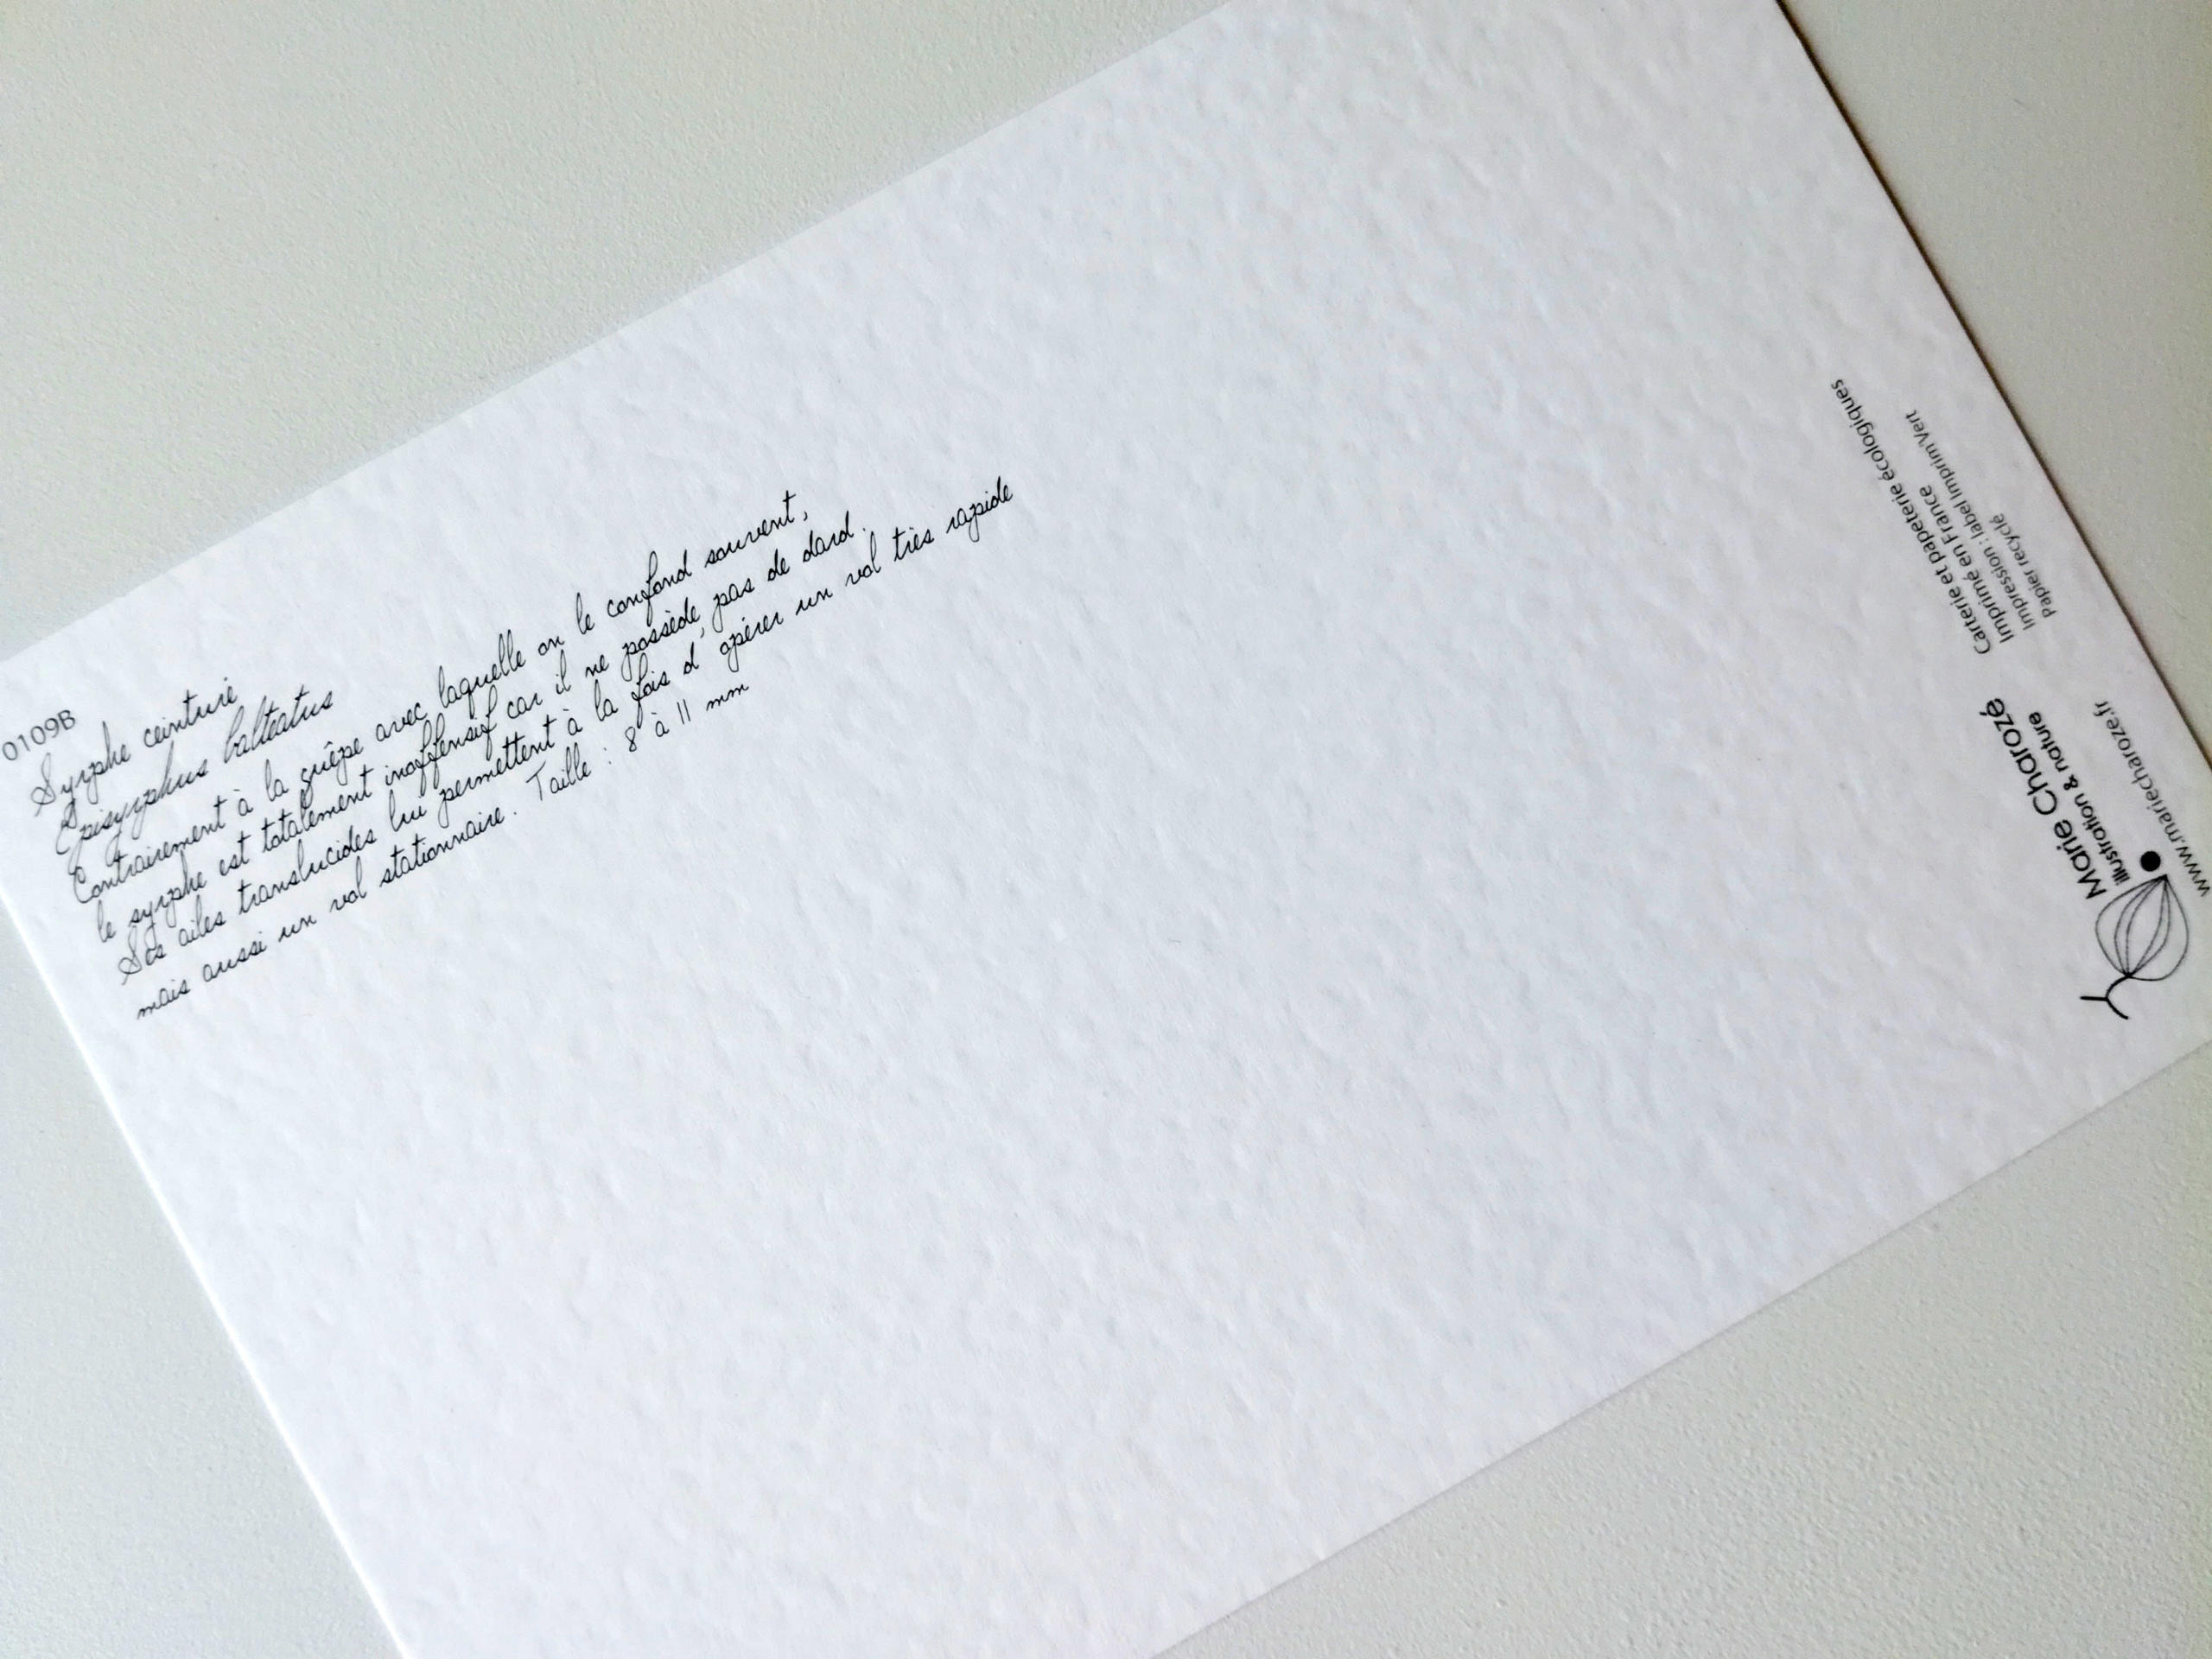 0109B
Syrphe ceinturé
Episyrphus balteatus
Contrairement à la guêpe avec laquelle on le confond souvent,
le syrphe est totalement inoffensif car il ne possède pas de dard.
Ses ailes translucides lui permettent à la fois d'opérer un vol très rapide
mais aussi un vol stationnaire. Taille : 8 à 11 mm
Carterie et papeterie écologiques
Imprimé en France
Impression : label Imprim'Vert
Papier recyclé
Marie Charozé
illustration & nature
www.mariecharoze.fr